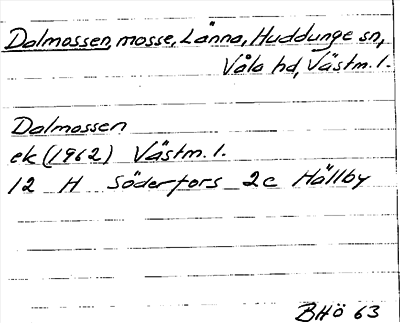 Dalmossen, mosse, Länna, Huddunge sn,
Våla hd, Västm. l.
Dalmossen
ek (1962) Västm. l.
12 H Söderfors 2c Hällby
BHÖ 63